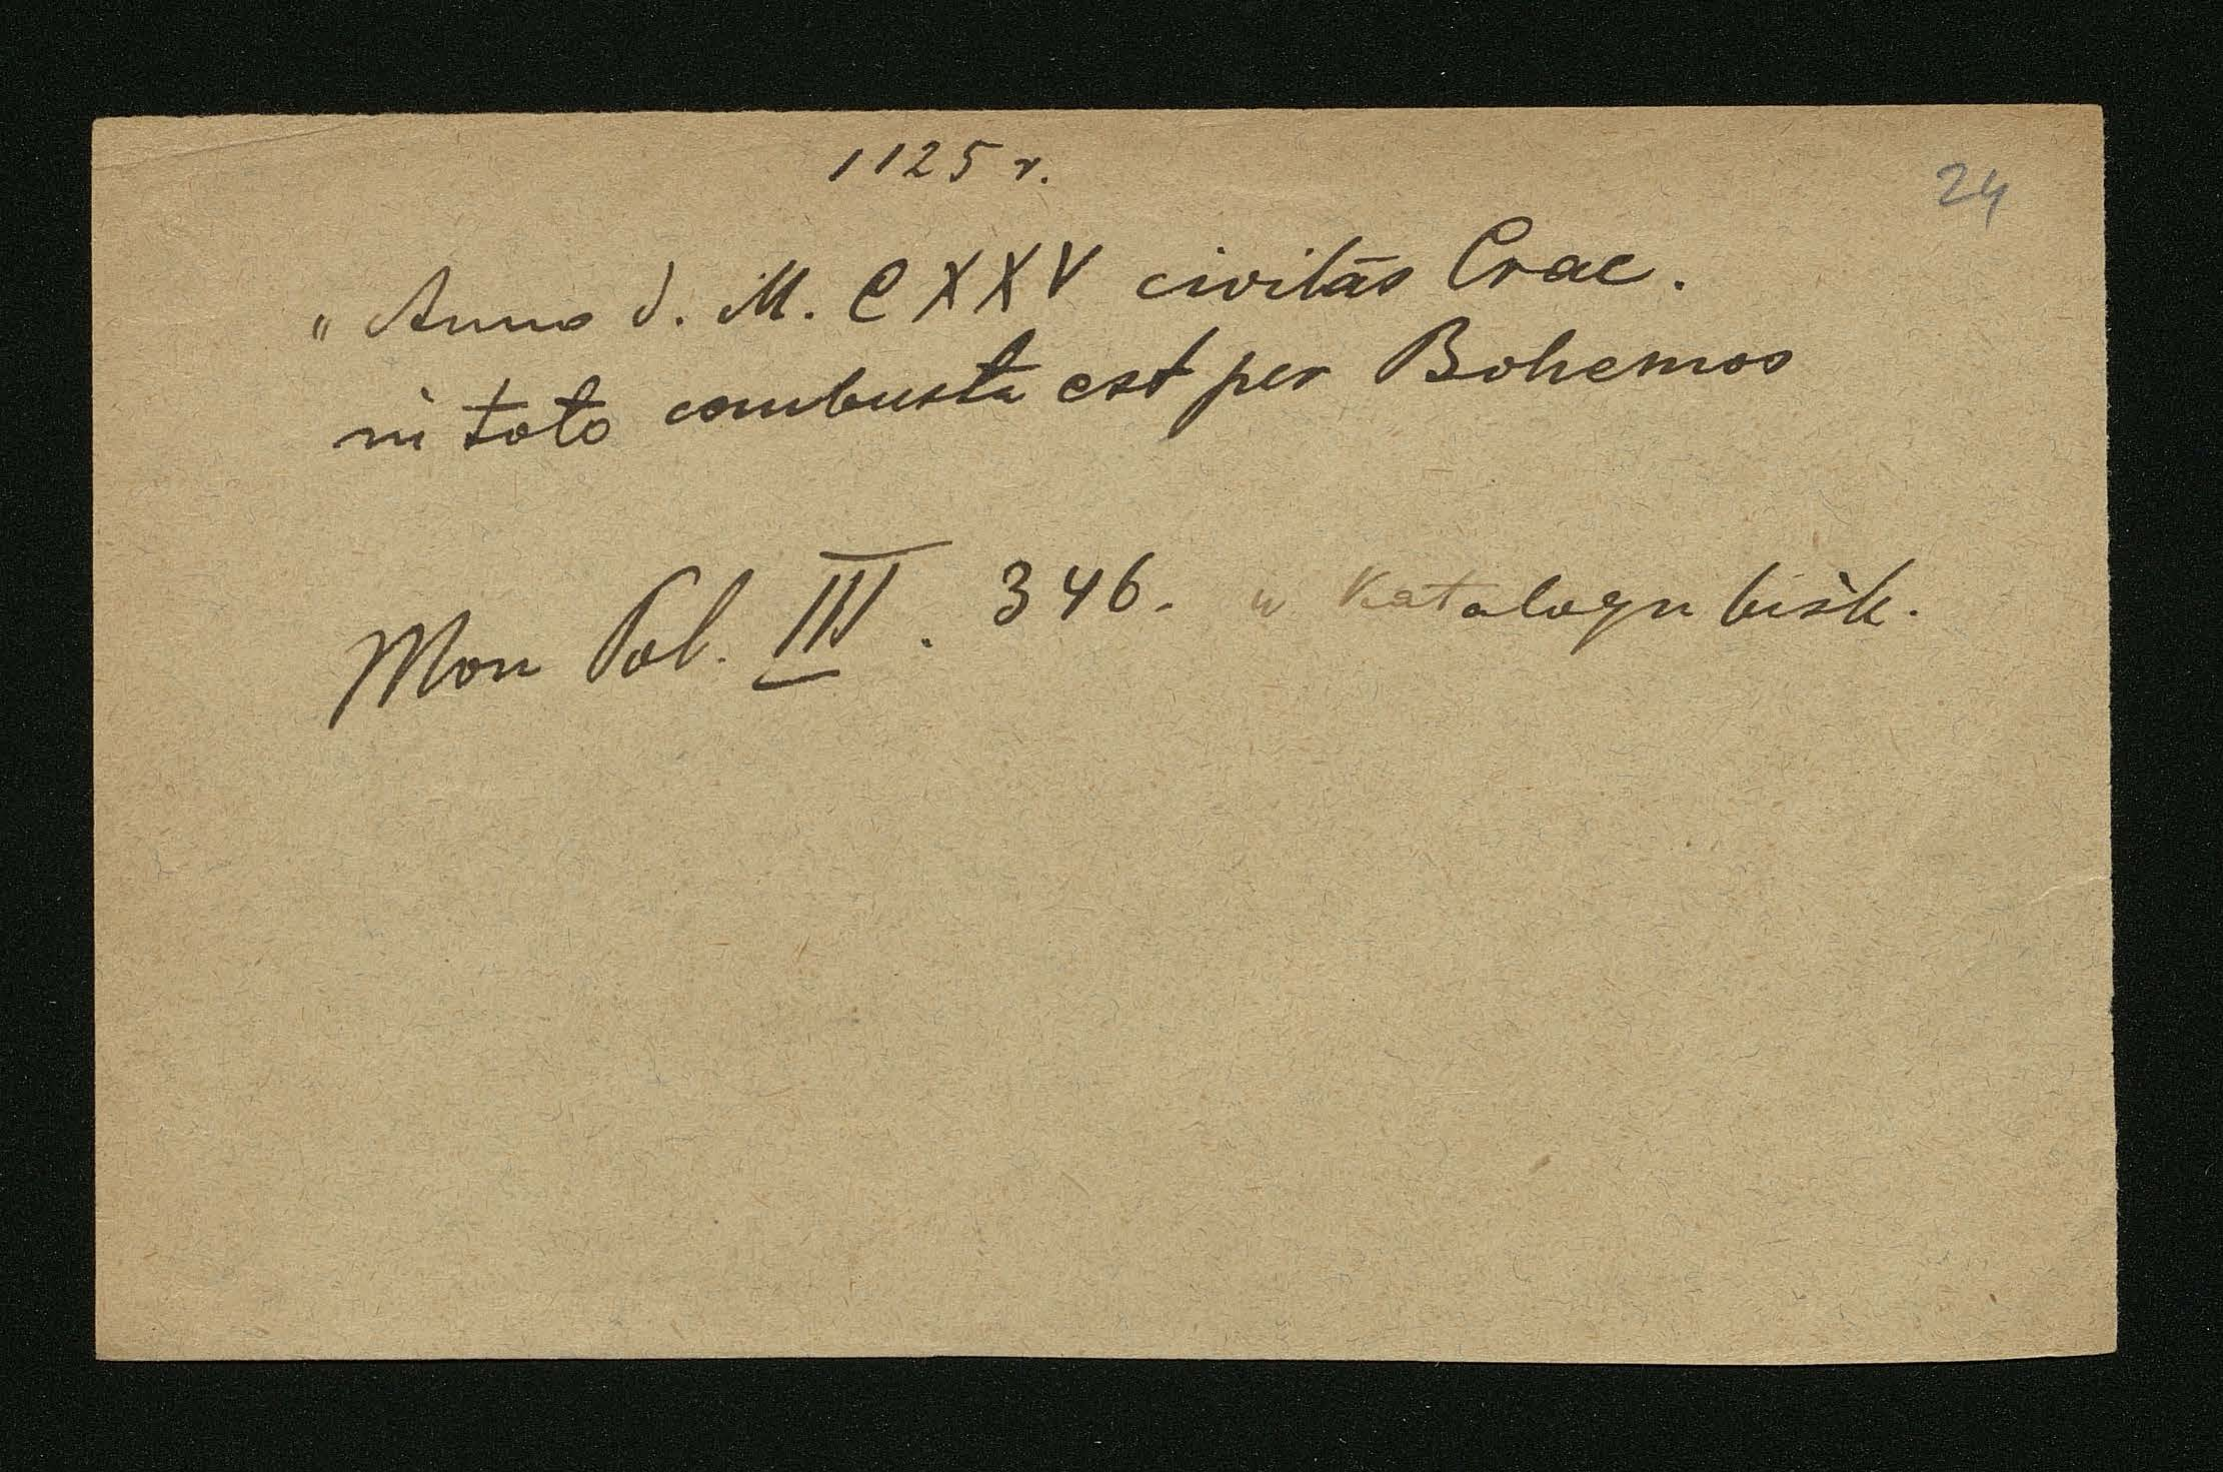 1125 r.
24
„Anno d. M. CXXV civitas Crac.
in toto combusta est per Bohemos
Mon Pol. III. 346. w Katalogu bisk.